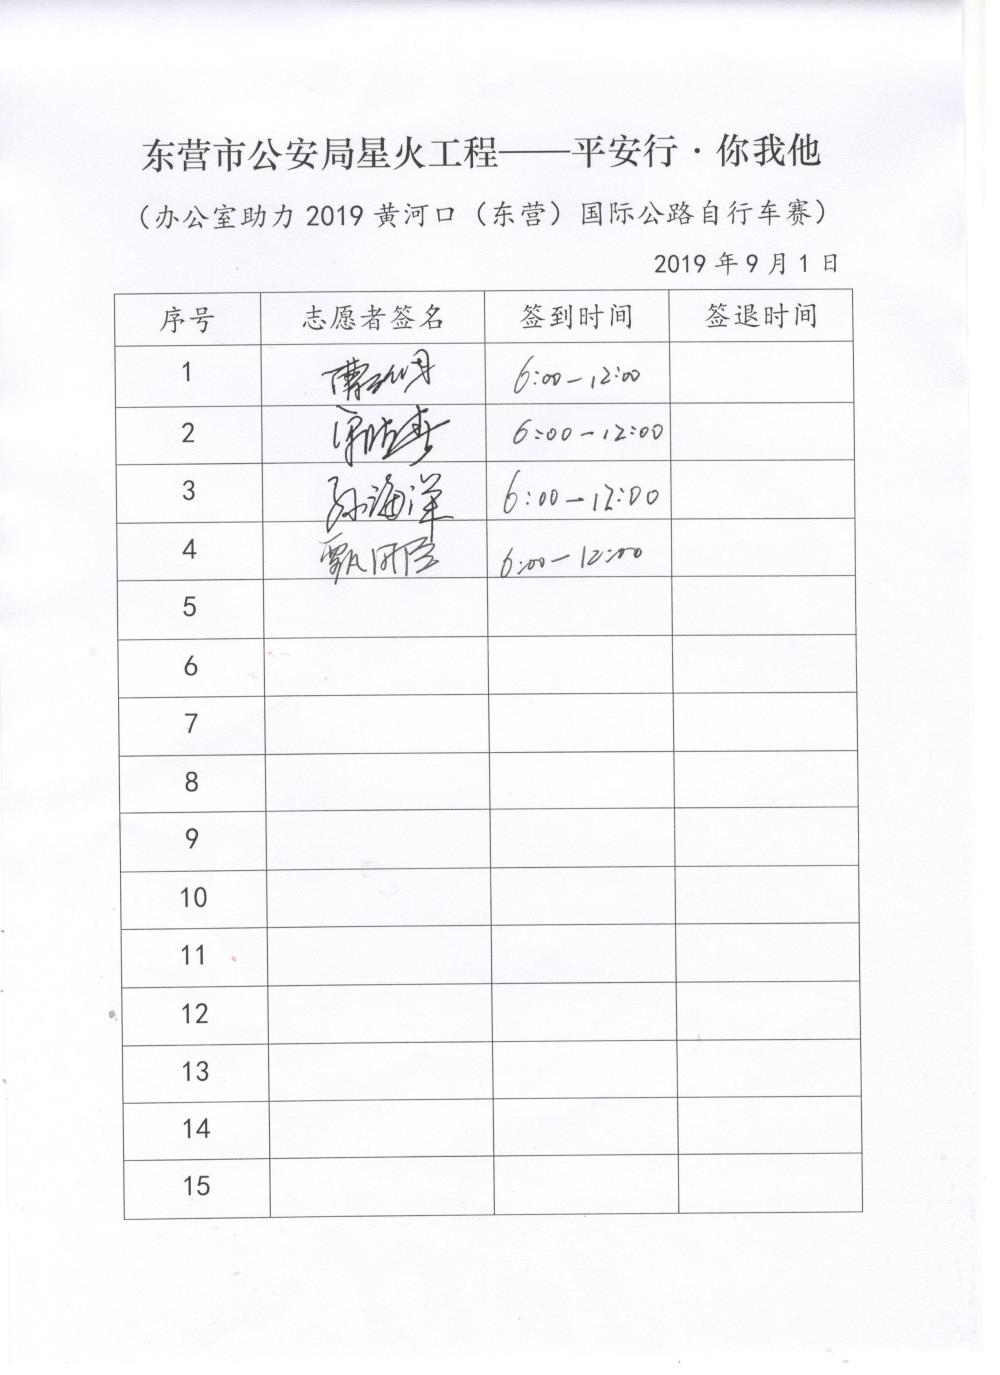 东营市公安局星火工程——平安行·你我他
（办公室助力 2019 黄河口（东营）国际公路自行车赛）
2019 年 9 月 1 日
序号 志愿者签名 签到时间 签退时间
1 6:00—12:00
2 6:00—12:00
3 孙海洋 6:00—12:00
4 6:00—12:00
5
6
7
8
9
10
11
12
13
14
15